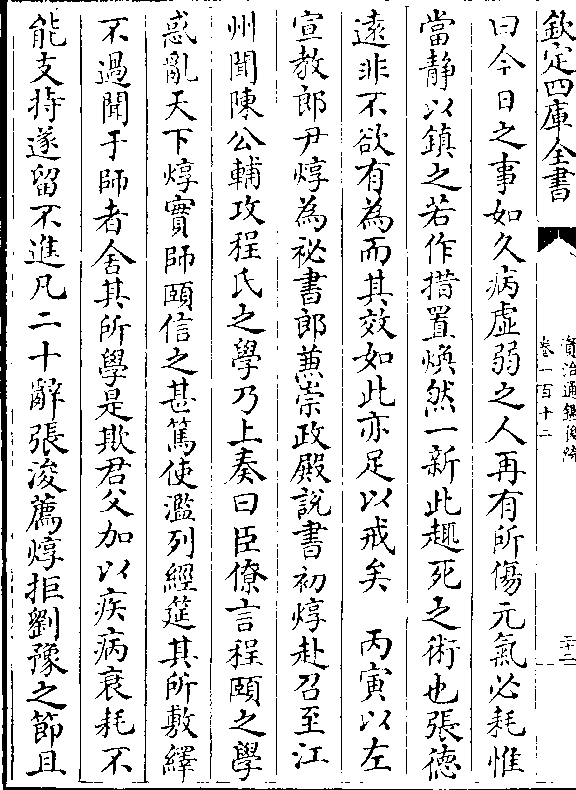 欽定四庫全書
資治通鑑後編
卷一百十二
三十二
曰今日之事如久病虛弱之人再有所傷元氣必耗惟
當静以鎮之若作措置煥然一新此趣死之術也張德
逺非不欲有為而其效如此亦足以戒矣　丙寅以左
宣教郎尹焞為祕書郎兼崇政殿說書初焞赴召至江
州聞陳公輔攻程氏之學乃上奏曰臣僚言程頤之學
惑亂天下焞實師頤信之甚篤使濫列經筵其所敷繹
不過聞于師者舍其所學是欺君父加以疾病衰耗不
能支持遂留不進凡二十辭張浚薦焞拒劉豫之節且